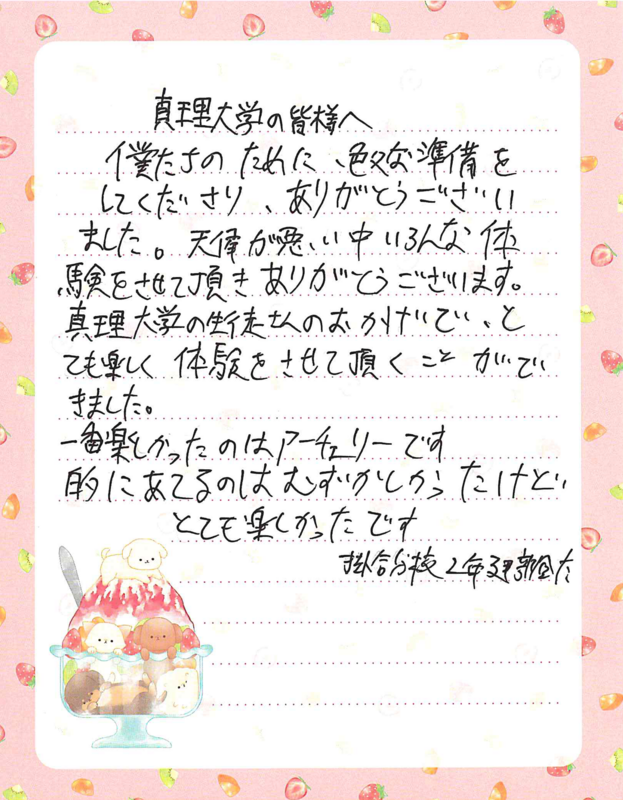 真理大学の皆様へ
僕たちのために、色々な準備を
してくださり、ありがとうござい
ました。天候が悪い中いろんな体
験をさせて頂きありがとうございます。
真理大学の生徒さんのおかげで、と
ても楽しく体験をさせて頂くことがで
きました。
一番楽しかったのはアーチェリーです
的にあてるのはむずかしかったけど
とても楽しかったです
掛合分校2年